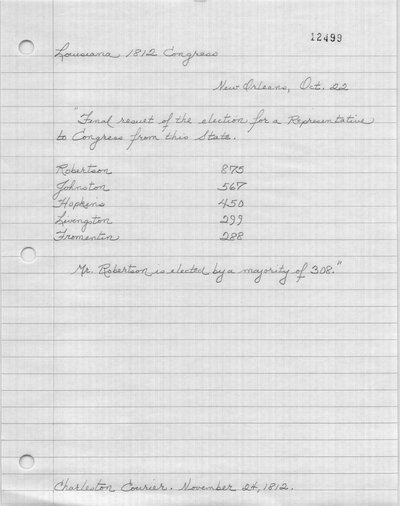 12499
Louisiana 1812 Congress
New Orleans, Oct. 22
"Final result of the election for a Representative
to Congress from this State.
Robertson 875
Johnston 567
Hopkins 450
Livingston 299
Fromentin 288
Mr. Robertson is elected by a majority of 308."
Charleston Courier. November 24, 1812.